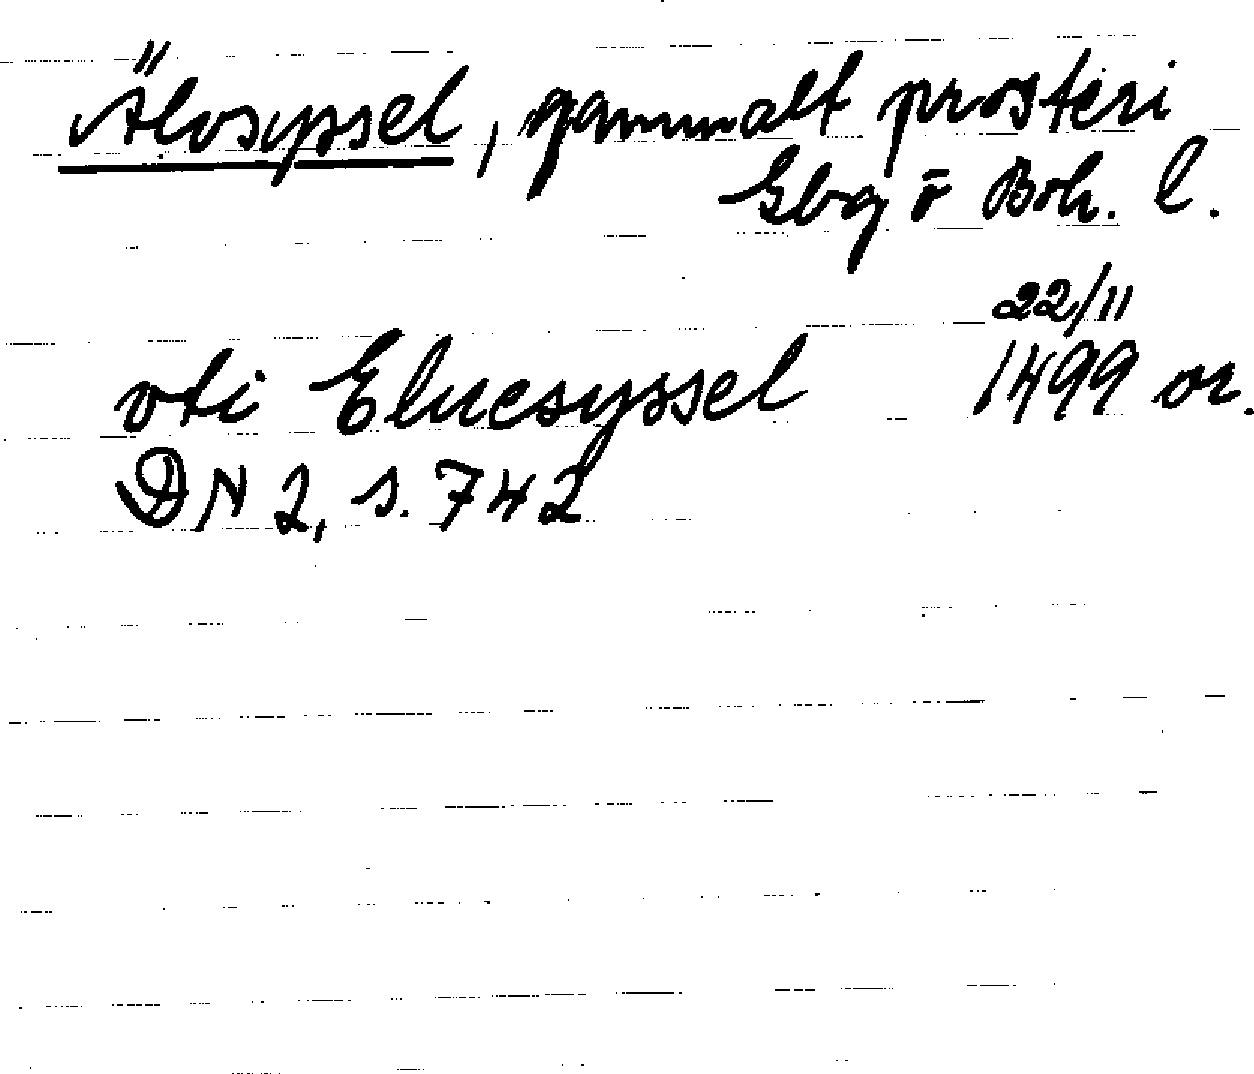 Älvsyssel, gammalt prosteri
Gbg o Boh. l.
22/11
vti Eluesyssel 1499 or.
DN 2, s. 742